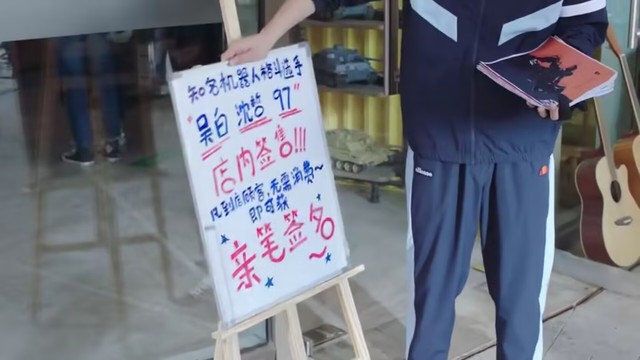 知名机器人格斗选手
"吴白 沈哲 97"
店内签售!!!
凡到店顾客,无需消费~
即可获
亲笔签名
ellesse